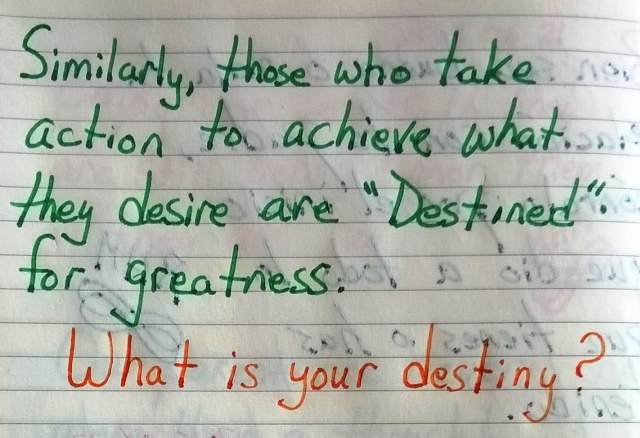 Similarly, those who take
action to achieve what
they desire are "Destined"
for greatness.
What is your destiny?